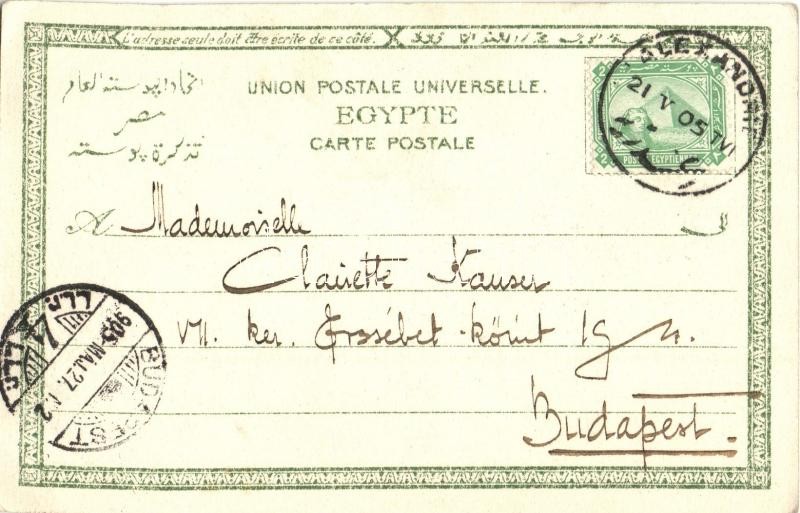 L'adresse seule doit être écrite de ce côté.
اتحاد البوسته العام
مصر
تذكرة بوسته
UNION POSTALE UNIVERSELLE.
EGYPTE
CARTE POSTALE
2
2
POSTES EGYPTIENNES
2
ALEXANDRIE
21 V 05 TVI
A
الى
Mademoiselle
Clairette Kauser
VII. ker. Erzsébet-körút 19
Budapest.
BUDAPEST
905 MAJ. 27.